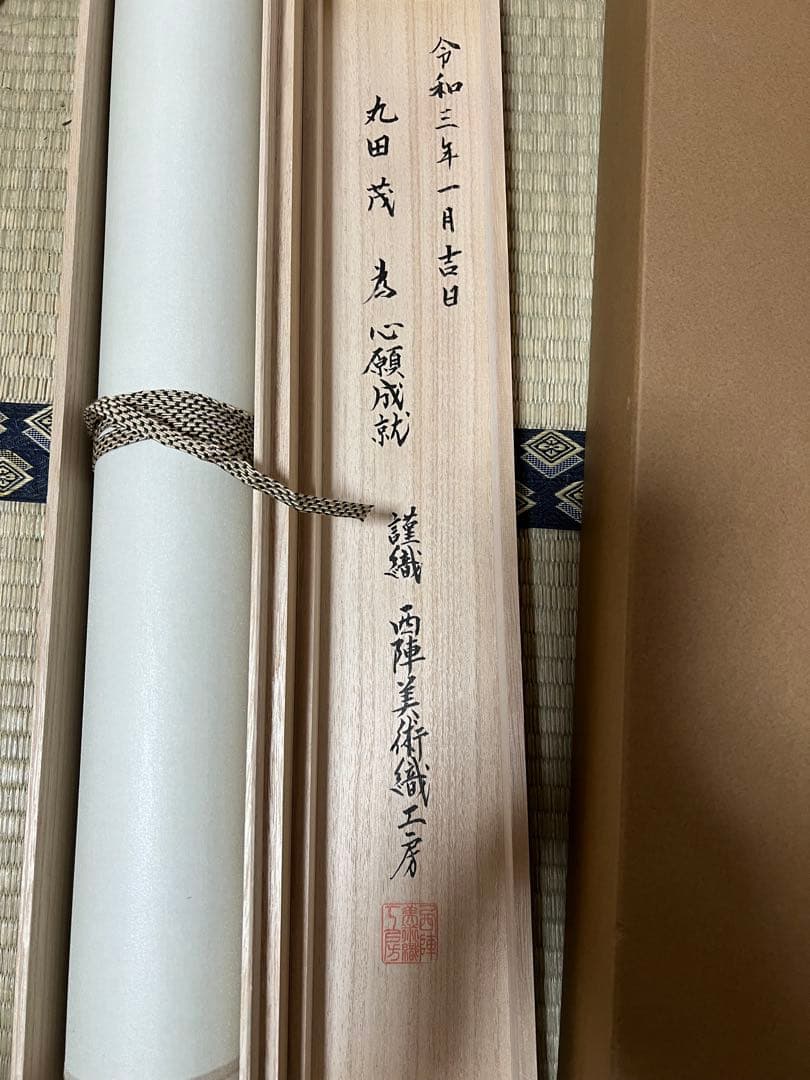 令和三年一月吉日
丸田茂 為 心願成就
謹織 西陣美術織工房
西陣
美術織
工房